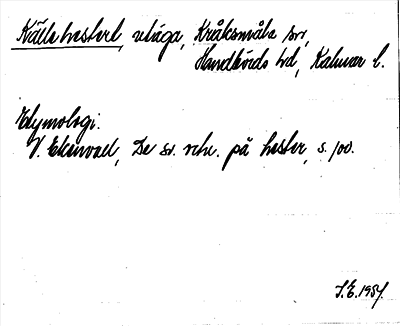 Källehesterl, utäga, Kråksmåla sn,
Handbörds hd, Kalmar l.
Etymologi:
V. Ekenvall, De sv. selv. på hester, s. 100.
S.E. 1954.